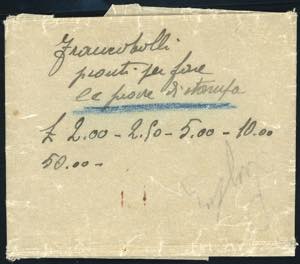 Francobolli
pronti per fare
le prove di stampa
£ 2.00 - 2.50 - 5.00 - 10.00
50.00 -